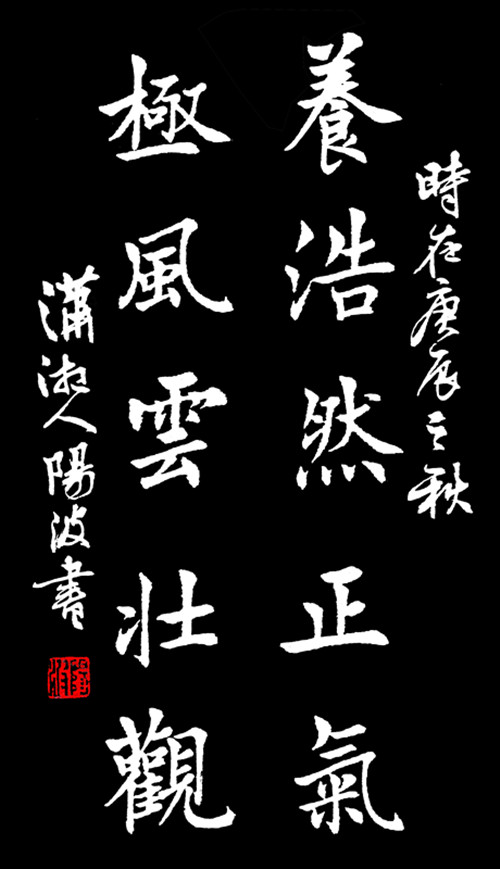 時在庚辰之秋
養浩然正氣
極風雲壯觀
瀟湘人陽波書